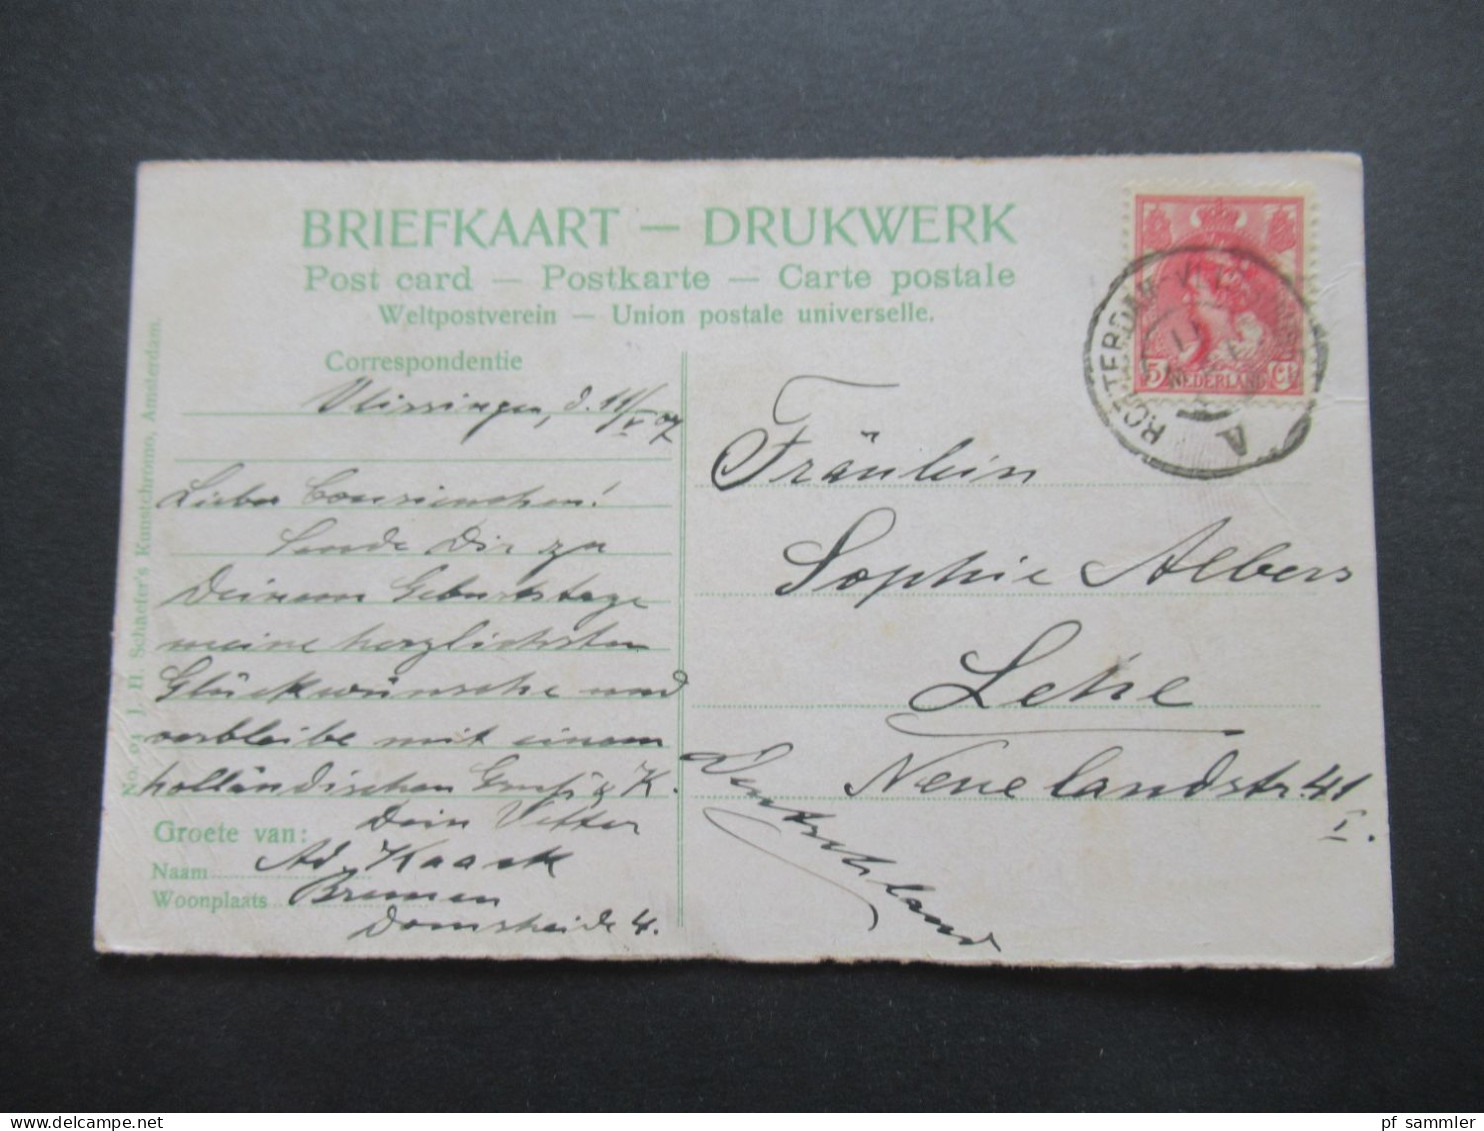 BRIEFKAART — DRUKWERK
Post card — Postkarte — Carte postale
Weltpostverein — Union postale universelle.
Correspondentie
Vlissingen, d. 11/V 07
Liebes Cousinchen!
Sende Dir zu
Deinem Geburtstage
meine herzlichsten
Glückwünsche und
verbleibe mit einem
holländischen Gruß & K.
Dein Vetter
Groete van:
Naam Ad. Kaack
Woonplaats Bremen
Domsheide 4.
No. 94 J. H. Schaefer's Kunstchromo, Amsterdam.
5 Ct
NEDERLAND
ROTTERDAM
A
Fräulein
Sophie Albers
Lehe
Neuelandstr. 41
I.
Deutschland
pf sammler